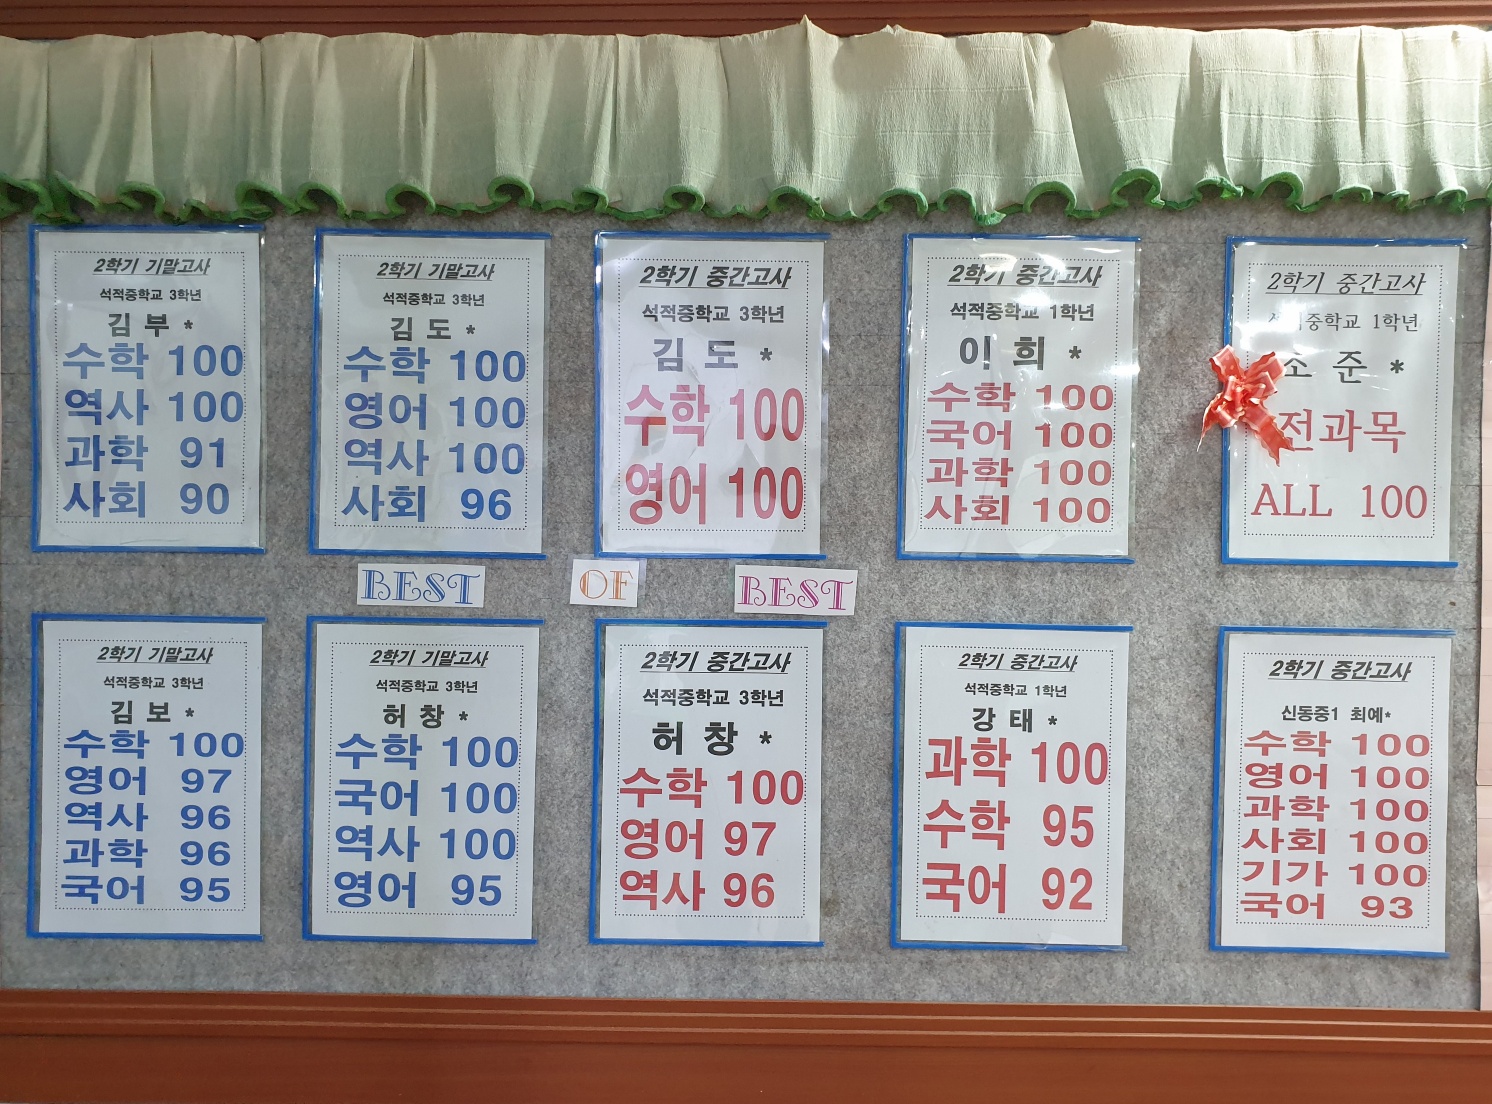 2학기 기말고사
석적중학교 3학년
김 부 *
수학 100
역사 100
과학 91
사회 90
2학기 기말고사
석적중학교 3학년
김 도 *
수학 100
영어 100
역사 100
사회 96
2학기 중간고사
석적중학교 3학년
김 도 *
수학 100
영어 100
2학기 중간고사
석적중학교 1학년
이 희 *
수학 100
국어 100
과학 100
사회 100
2학기 중간고사
석적중학교 1학년
소 준 *
전과목
ALL 100
BEST OF BEST
2학기 기말고사
석적중학교 3학년
김 보 *
수학 100
영어 97
역사 96
과학 96
국어 95
2학기 기말고사
석적중학교 3학년
허 창 *
수학 100
국어 100
역사 100
영어 95
2학기 중간고사
석적중학교 3학년
허 창 *
수학 100
영어 97
역사 96
2학기 중간고사
석적중학교 1학년
강 태 *
과학 100
수학 95
국어 92
2학기 중간고사
신동중1 최예*
수학 100
영어 100
과학 100
사회 100
기가 100
국어 93